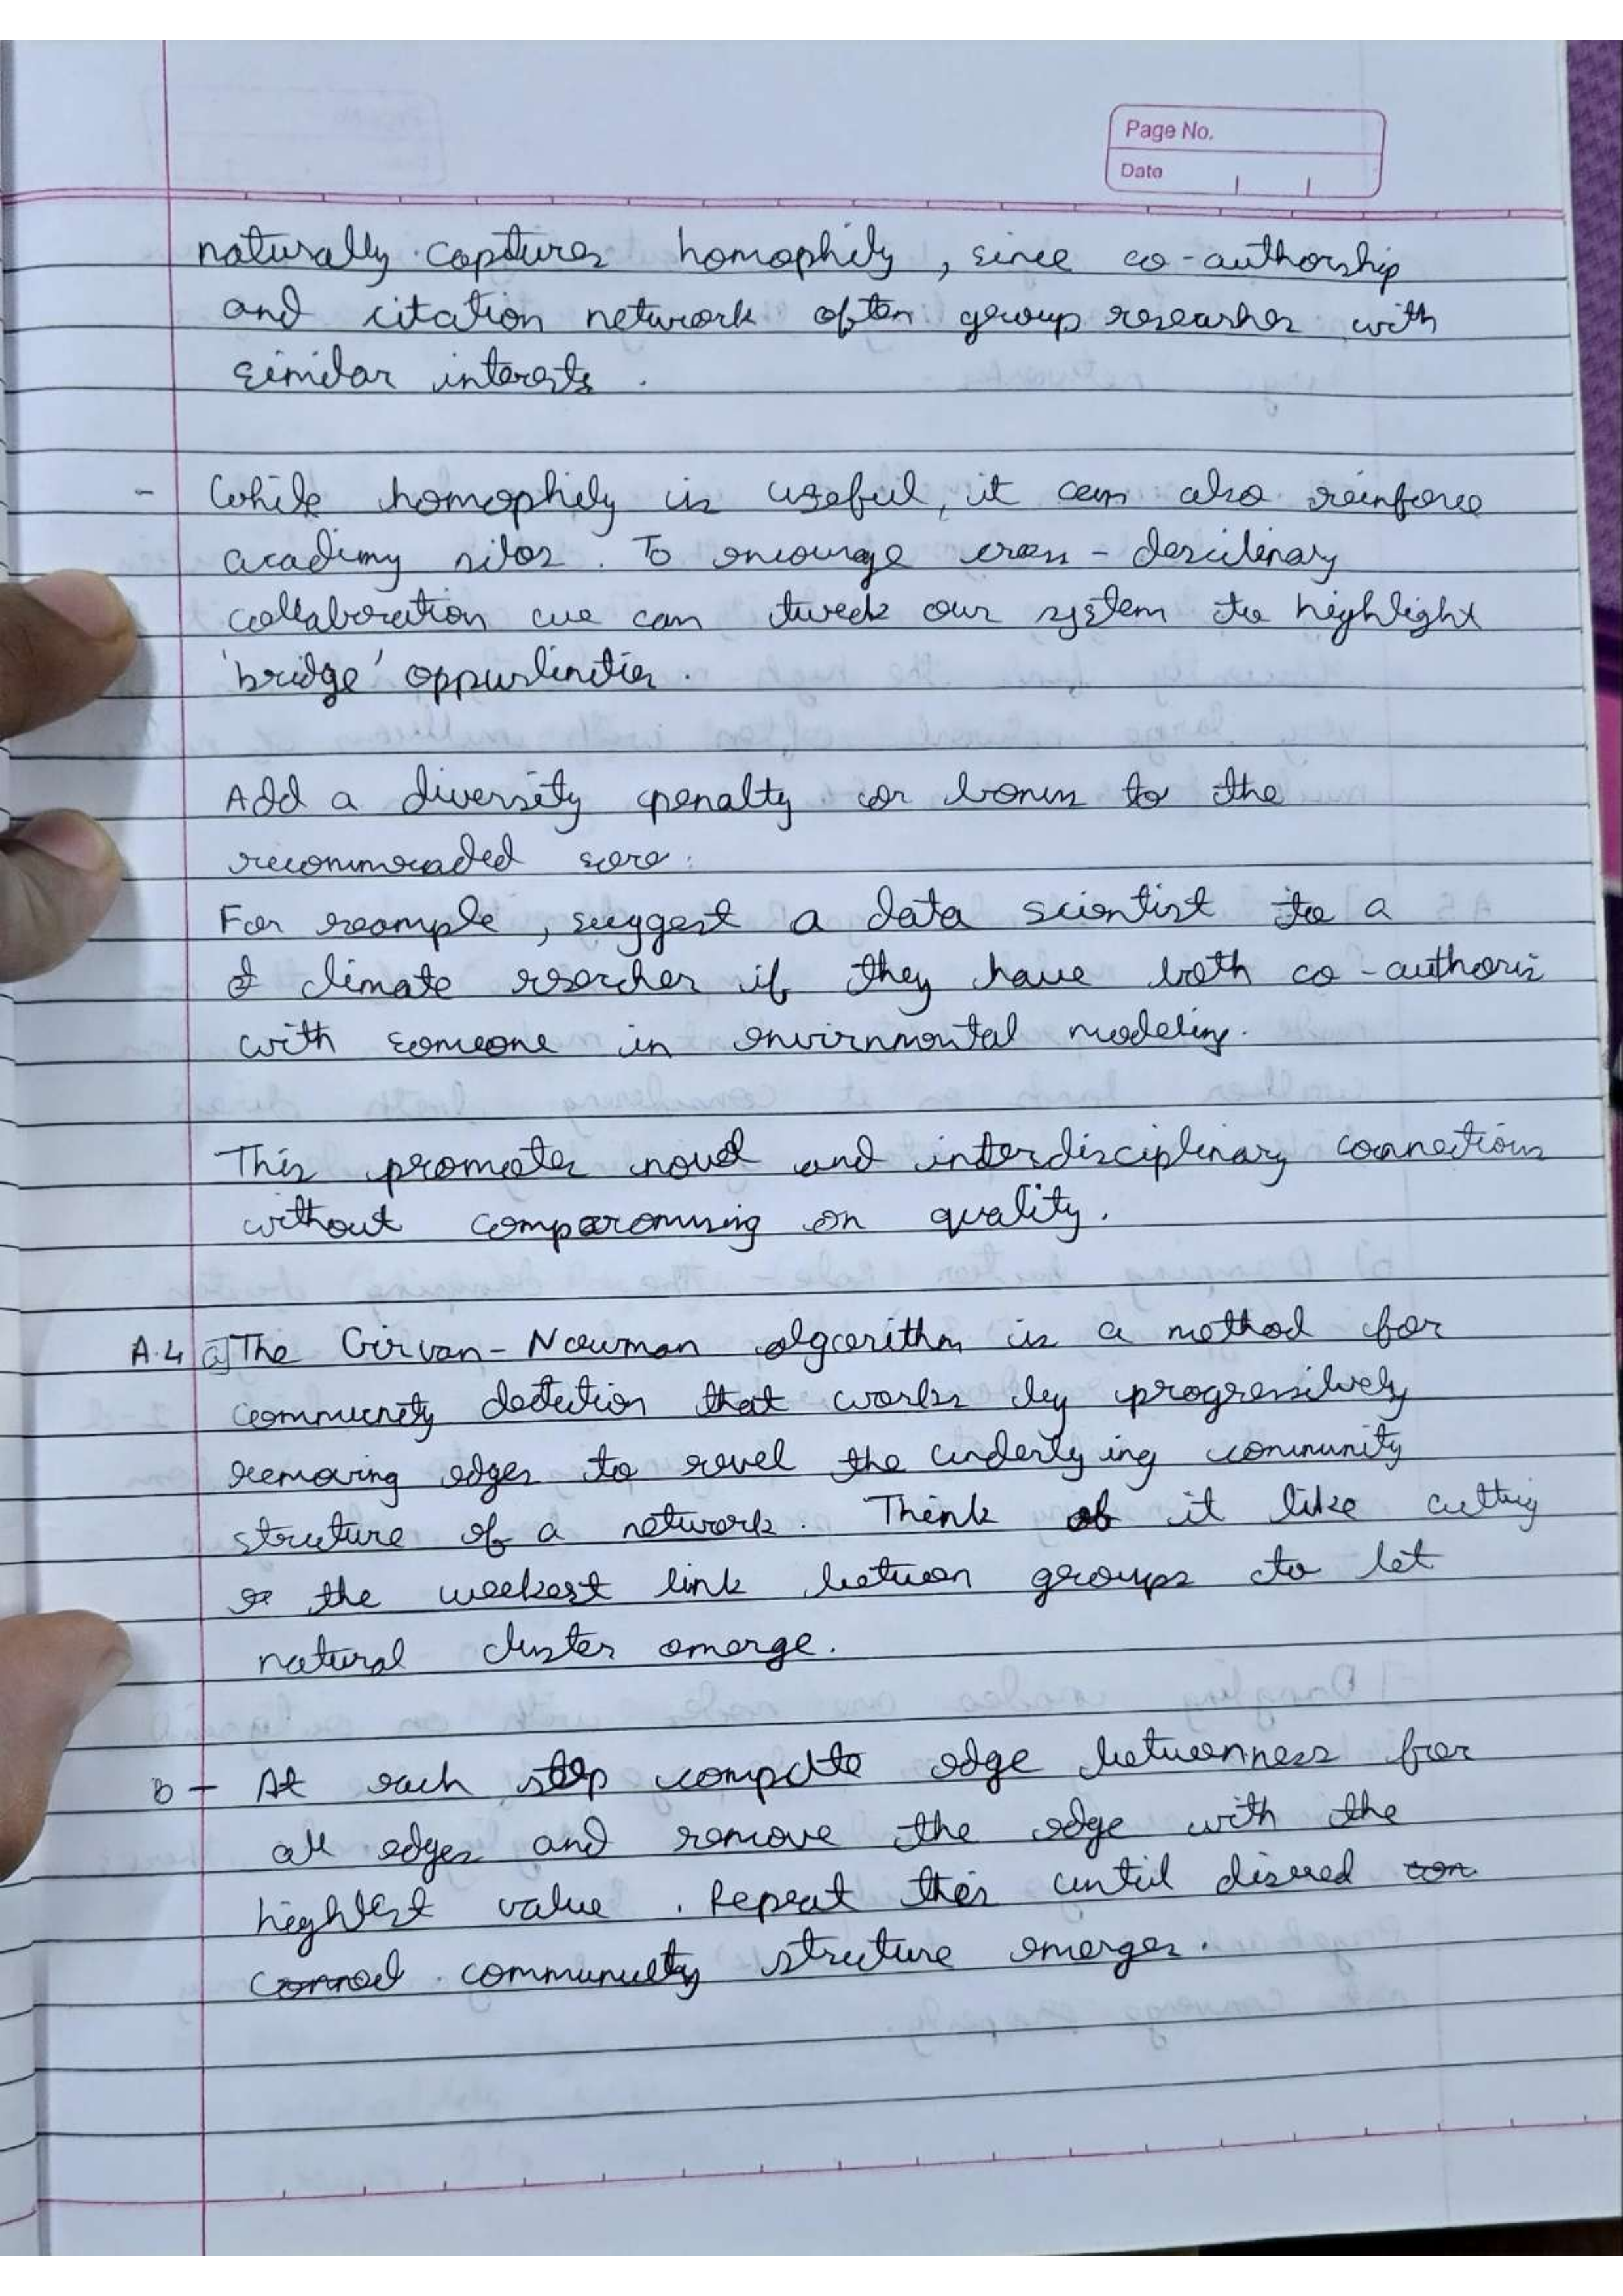 Page No.
Date
naturally captures homophily, since co-authorship
and citation network often group researher with
similar interests.
- While homophily is useful, it can also reinforce
academy silos. To encourage cross-descilinary
collaboration we can tweek our system to highlight
'bridge' oppurtinities.
Add a diversity penalty or bonus to the
recommended score:
For example, suggest a data scientist to a
climate researcher if they have both co-authoris
with someone in envirnmental modeling.
This promotes novel and interdisciplinary connections
without comparomising on quality.
A.4 a] The Girvan-Newman algorithm is a method for
community detection that works by progressively
removing edges to revel the underlying community
struture of a network. Think of it like cutting
the weekest link between groups to let
natural cluster emerge.
b - At each step compute edge betweenness for
all edges and remove the edge with the
highest value. Repeat this until disired con
communuity struture emerges.